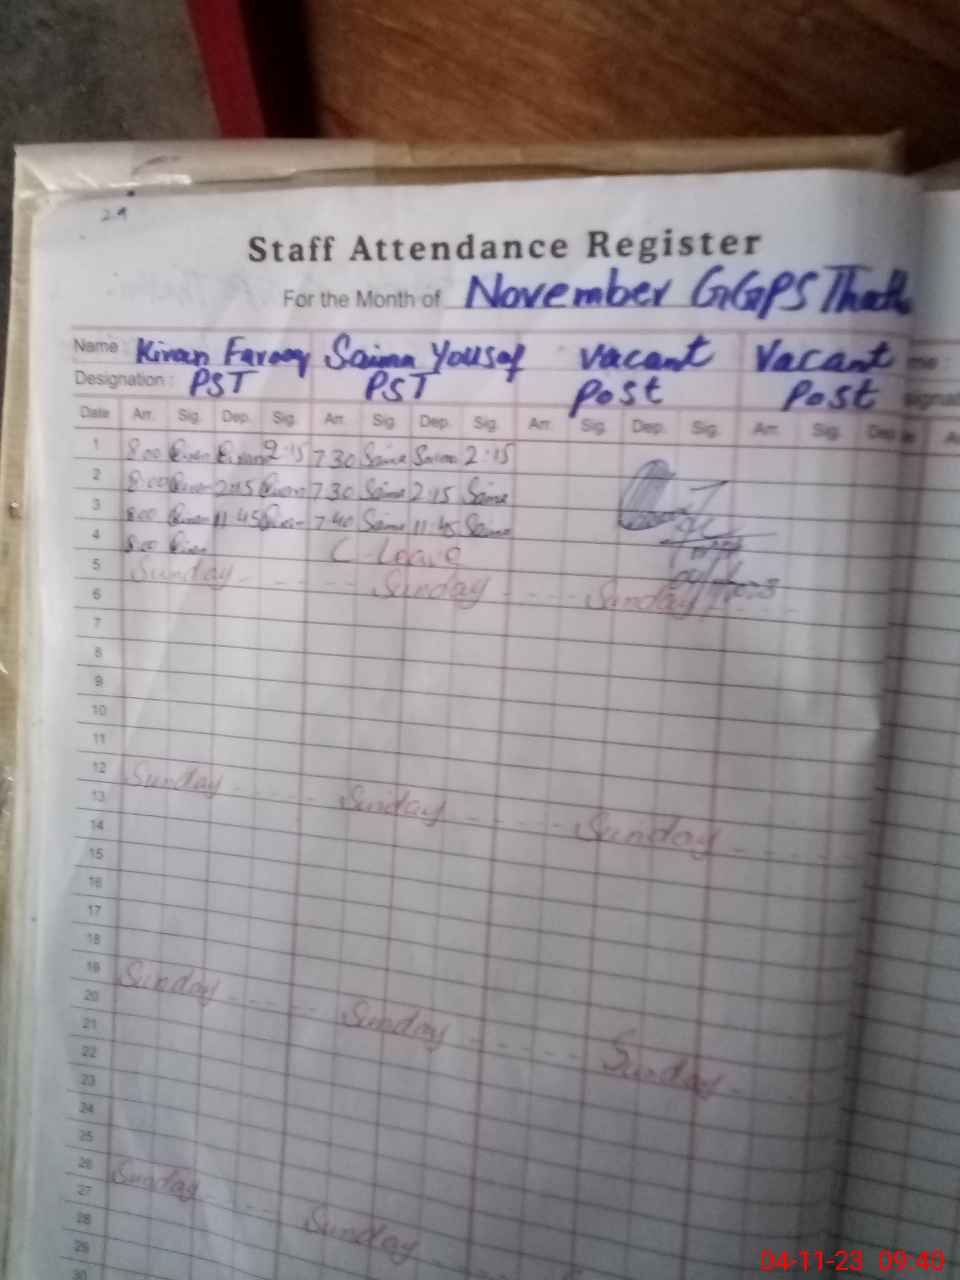 29
Staff Attendance Register
For the Month of November GGPS
Name : Kiran Farooq Saima Yousaf Vacant Vacant me :
Designation : PST PST Post Post signat
Date Arr. Sig. Dep. Sig. Arr. Sig. Dep. Sig. Arr. Sig. Dep. Sig. Arr. Sig. Dep.
1 8:00 Kiran Kiran 2:15 7:30 Saima Saima 2:15
2 8:00 Kiran 2:15 Kiran 7:30 Saima 2:15 Saima
3 8:00 Kiran 11:45 Kiran 7:40 Saima 11:45 Saima
4 8:00 Kiran C-Leave
5 Sunday Sunday Sunday
6
7
8
9
10
11
12 Sunday Sunday Sunday
13
14
15
16
17
18
19 Sunday Sunday Sunday
20
21
22
23
24
25
26 Sunday Sunday
27
28
29
30
04-11-23 09:40